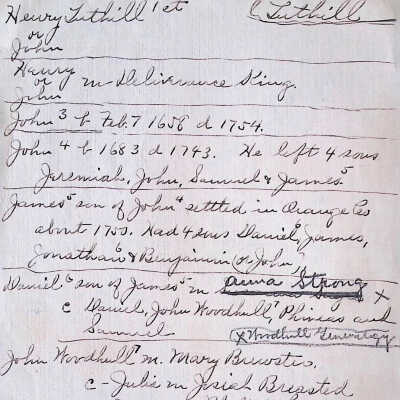 Henry Tuthill 1st
C Tuthill
or
John
Henry
or m - Deliverance King.
John
John 3 b Feb. 7 1658 d 1754.
John 4 b 1683 d 1743. He left 4 sons
Jeremiah, John, Samuel & James 5
James 5 son of John 4 settled in Orange Co
about 1755. Had 4 sons Daniel 6, James,
Jonathan 6 & Benjamin (or John)
Daniel 6 son of James 5 m Anna Strong x
c Daniel, John Woodhull 7, Phineas and
Samuel
x Woodhull Genealogy
John Woodhull 7 m. Mary Brewster.
c - Julia m Josiah Breasted